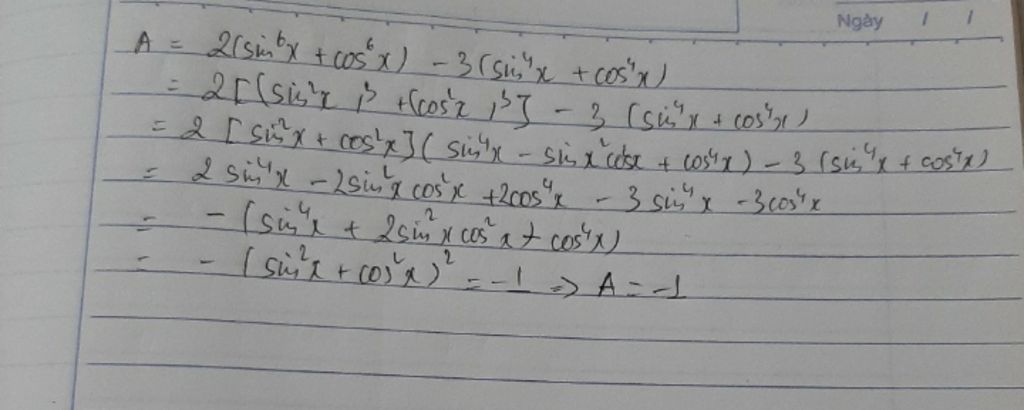 Ngày / /
A = 2(sin⁶x + cos⁶x) - 3(sin⁴x + cos⁴x)
= 2[(sin²x)³ + (cos²x)³] - 3(sin⁴x + cos⁴x)
= 2[sin²x + cos²x](sin⁴x - sin x² cos²x + cos⁴x) - 3(sin⁴x + cos⁴x)
= 2sin⁴x - 2sin²x cos²x + 2cos⁴x - 3sin⁴x - 3cos⁴x
= -(sin⁴x + 2sin²x cos²x + cos⁴x)
= -(sin²x + cos²x)² = -1 => A = -1